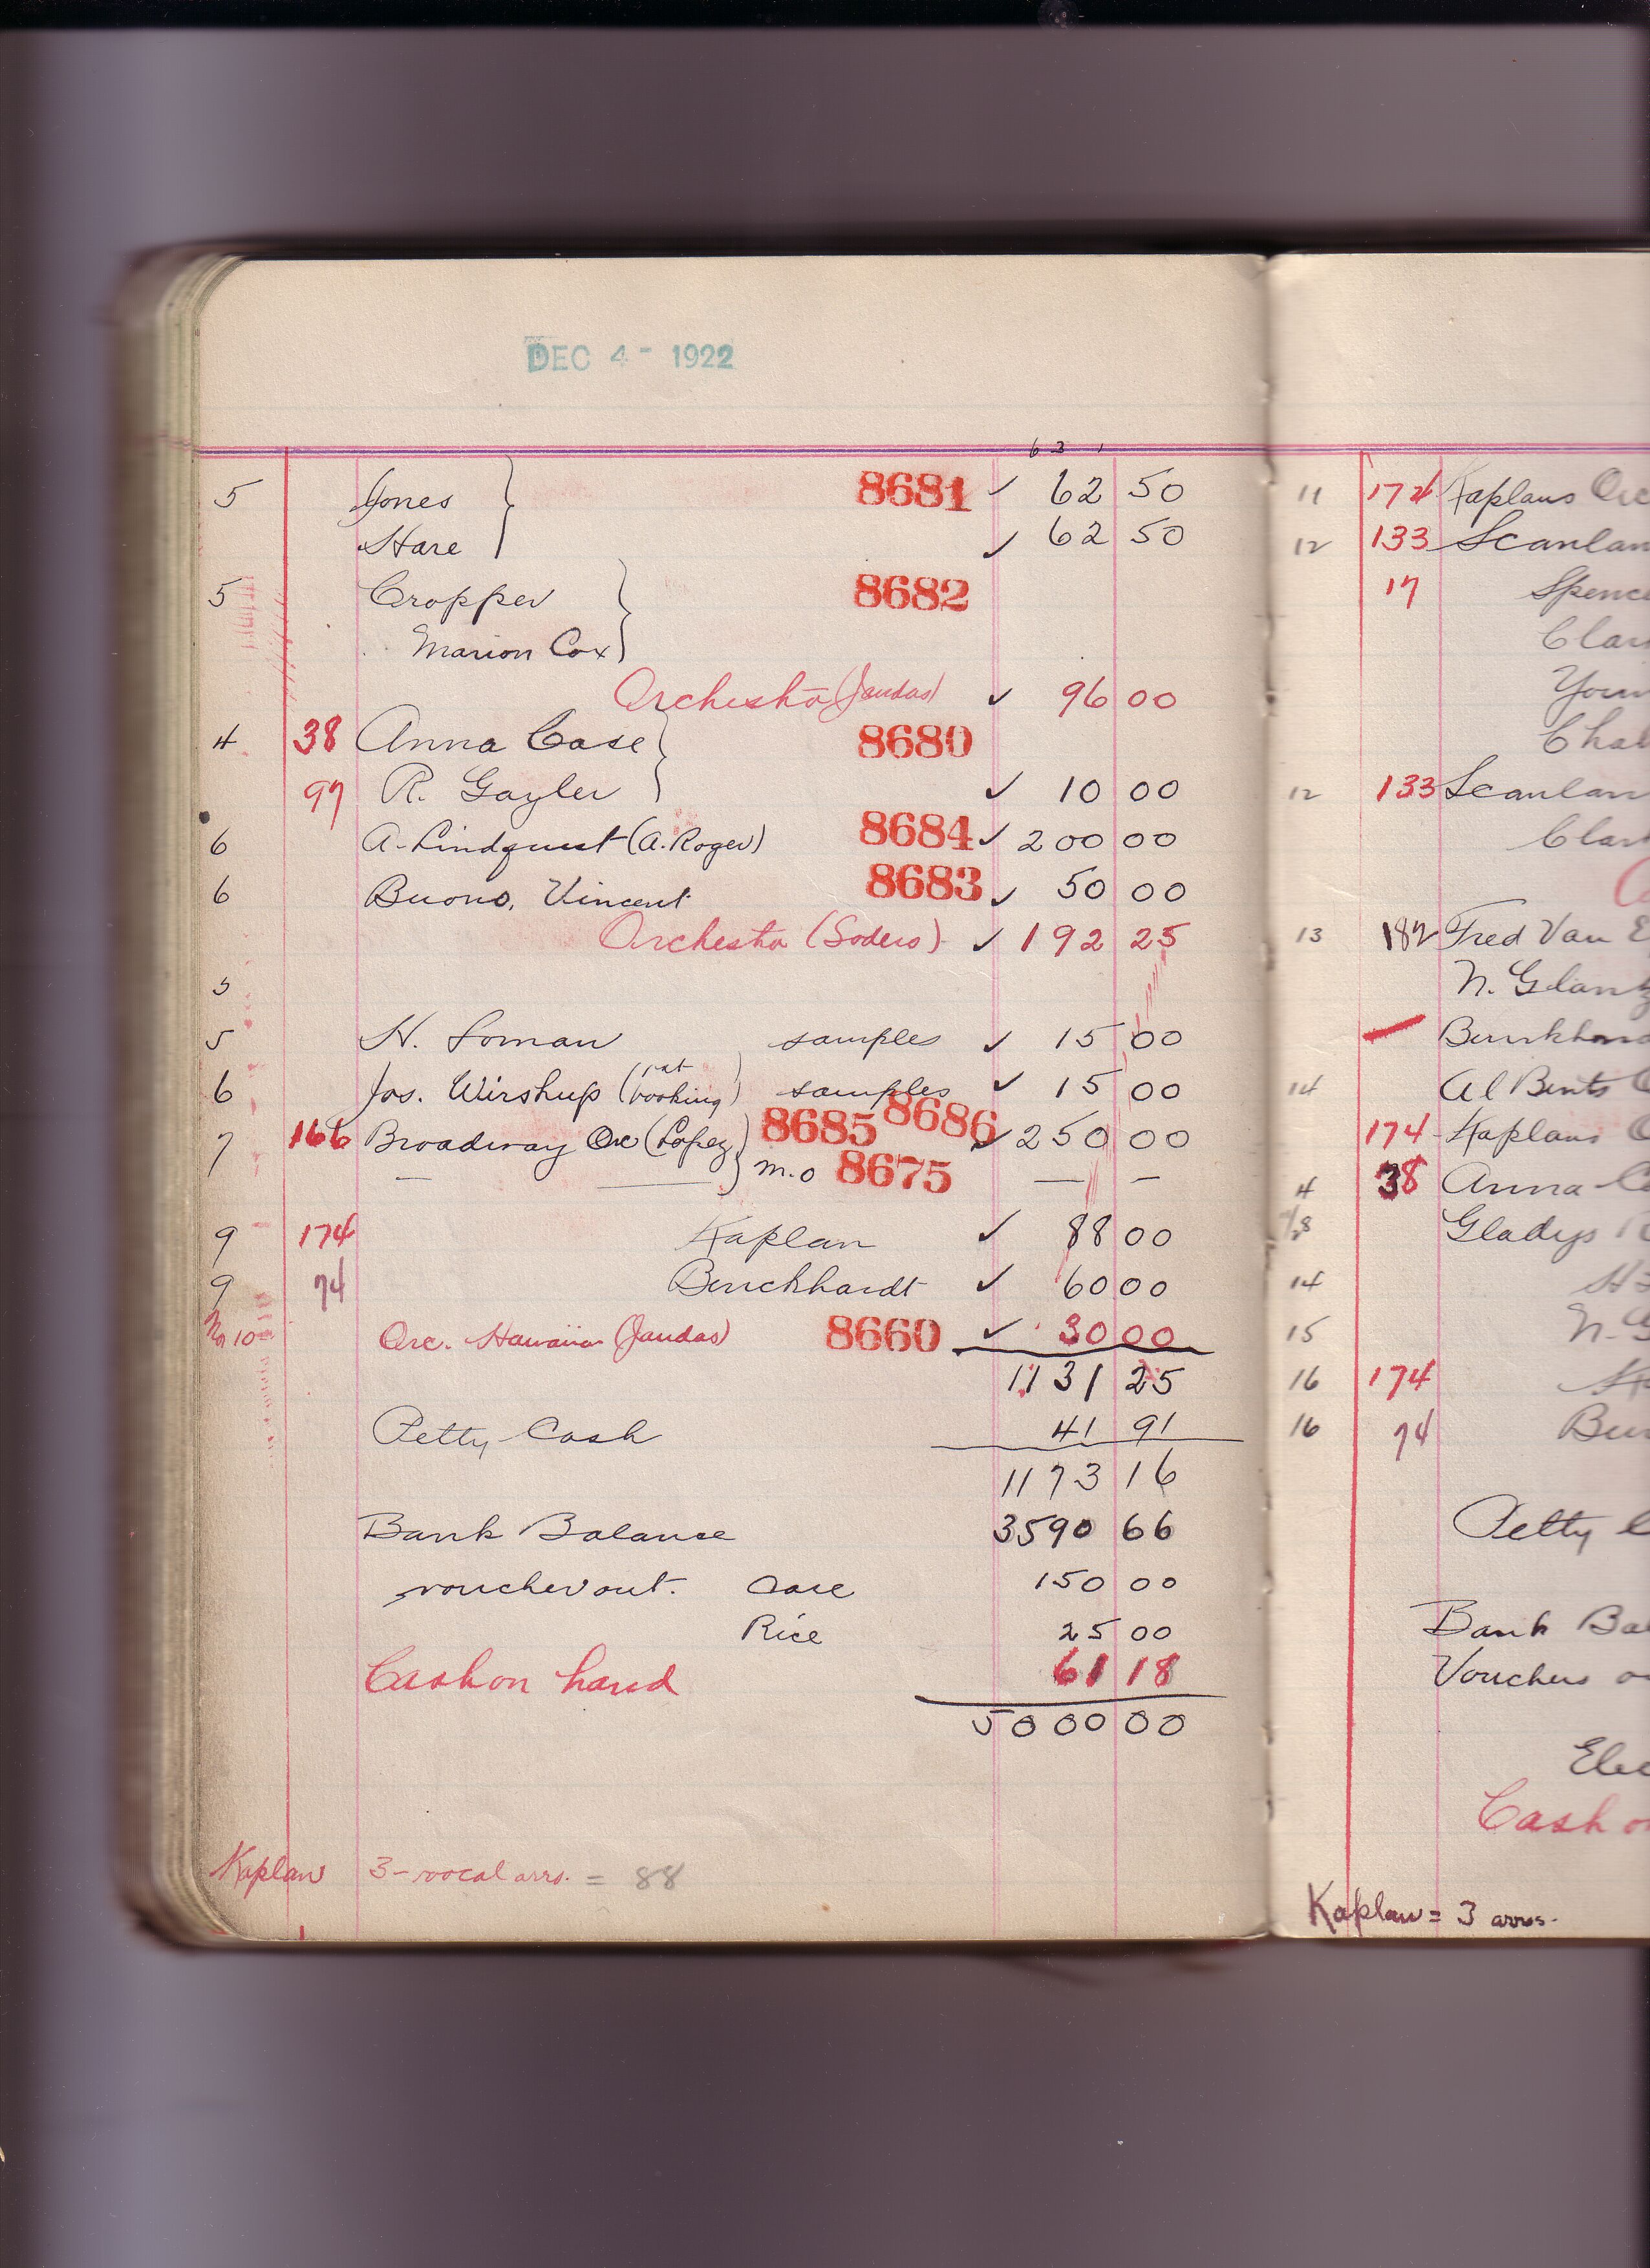 DEC 4 - 1922
5 Jones } 8681 ✓ 62 50
Hare ✓ 62 50
5 Cropper } 8682
Marion Cox
Orchestra (Jaudas) ✓ 96 00
4 38 Anna Case } 8680
97 R. Gayler ✓ 10 00
6 A. Lindquest (A. Roger) 8684 ✓ 200 00
6 Buono, Vincent 8683 ✓ 50 00
Orchestra (Sodero) ✓ 192 25
5
5 H. Loman samples ✓ 15 00
6 Jos. Wirshup (1st booking) samples ✓ 15 00
7 166 Broadway Orc (Lopez) 8685 8686 ✓ 250 00
— — } m.o 8675 — —
9 174 Kaplan ✓ 88 00
9 74 Burckhardt ✓ 60 00
No 10 Orc. Hawaiian (Jaudas) 8660 ✓ 30 00
1131 25
Petty Cash 41 91
1173 16
Bank Balance 3590 66
voucher out. Case 150 00
Rice 25 00
Cash on hand 61 18
5000 00
Kaplan 3 - vocal arrs. = 88
11 174 Kaplans Orc
12 133 Scanlan
17 Spenc
Clar
Youn
Chal
12 133 Scanlan
Clar
13 182 Fred Van E
N. Glantz
Burkha
14 Al Bents O
174 Kaplans O
4 38 Anna Ca
Gladys R
14
15 N. G
16 174
16 74 Bur
Petty C
Bank Bal
Vouchers o
Elec
Cash o
Kaplan = 3 arrs.